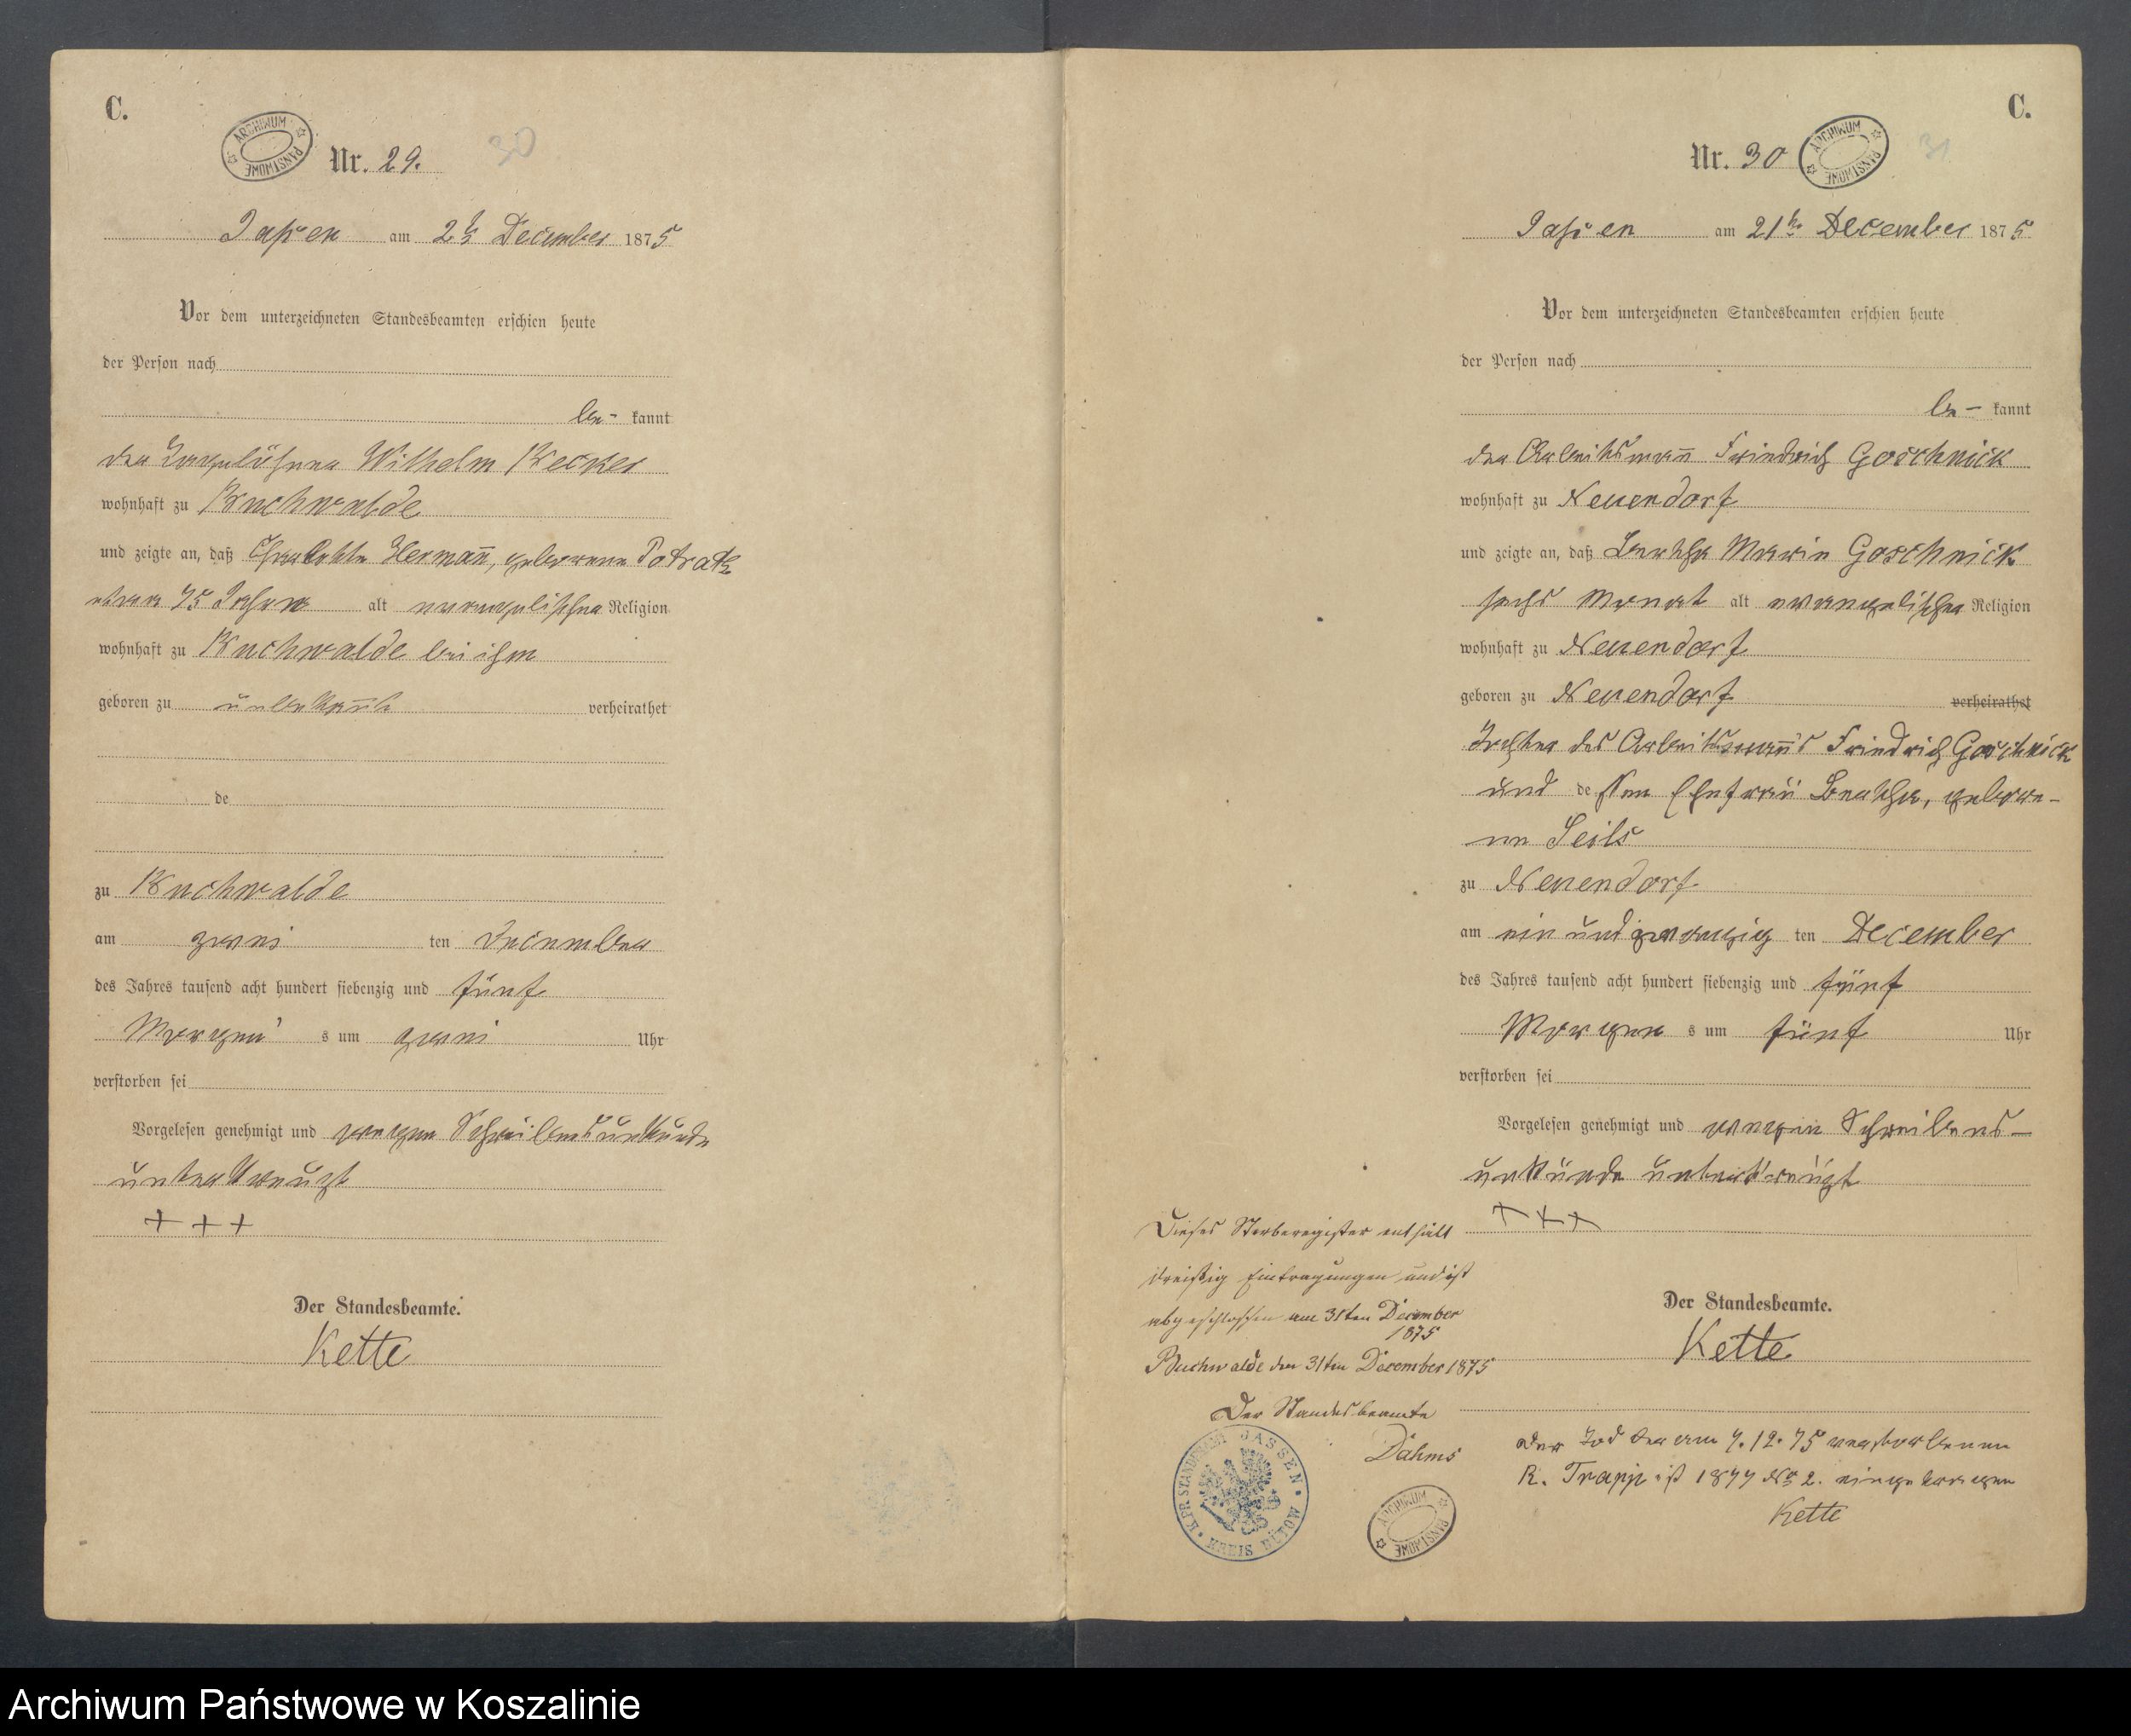 C.
Nr. 29.
30
ARCHIWUM PAŃSTWOWE
Jassen am 2t December 1875
Vor dem unterzeichneten Standesbeamten erschien heute
der Person nach
be- kannt
der Tagelöhner Wilhelm Becker
wohnhaft zu Buchwalde
und zeigte an, daß Charlotte Hermañ, geborene Potratz
etwa 75 Jahre alt evangelischer Religion
wohnhaft zu Buchwalde bei ihm
geboren zu unbekañt verheirathet
de
zu Buchwalde
am zwei ten December
des Jahres tausend acht hundert siebenzig und fünf
Morgen s um zwei Uhr
verstorben sei
Vorgelesen genehmigt und wegen Schreibensunkunde
unterkreuzt
+ + +
Der Standesbeamte.
Kette
C.
Nr. 30
31
ARCHIWUM PAŃSTWOWE
Jassen am 21t December 1875
Vor dem unterzeichneten Standesbeamten erschien heute
der Person nach
be- kannt
der Arbeitsmañ Friedrich Goschnick
wohnhaft zu Neuendorf
und zeigte an, daß Bertha Marie Goschnick
sechs Monat alt evangelischer Religion
wohnhaft zu Neuendorf
geboren zu Neuendorf verheirathet
Tochter des Arbeitsmañ's Friedrich Goschnick
und dessen Ehefrau Bertha, gebore-
ne Seils
zu Neuendorf
am ein und zwanzig ten December
des Jahres tausend acht hundert siebenzig und fünf
Morgen s um fünf Uhr
verstorben sei
Vorgelesen genehmigt und wegen Schreibens-
unkunde unterkreuzt
+ + +
Der Standesbeamte.
Kette
Dieses Sterberegister enthält
dreißig Eintragungen und ist
abgeschlossen am 31ten December
1875
Buchwalde den 31ten December 1875
Der Standesbeamte
Dahms
KPR STANDESAMT JASSEN • KREIS BÜTOW •
ARCHIWUM PAŃSTWOWE
Der Tod der am 7.12.75 verstorbenen
R. Trapp ist 1877 No 2. eingetragen
Kette
Archiwum Państwowe w Koszalinie